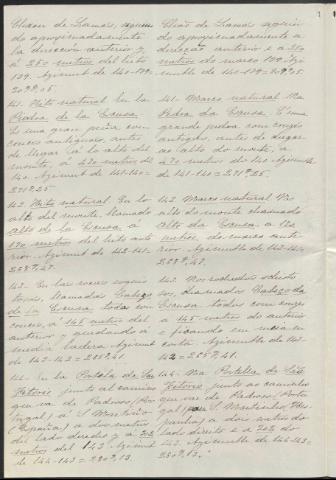 Chaeon de Lamas, siguien
do aproximadamente
la direccion anterior y
á 250 metros del hito
139. Azimut de 140-139=
209º,05.
141. Hito natural. En la
Piedra de la Cousa.
Es una gran peña, con
cruces antiguas, antes
de llegar á lo alto del
monte, á 420 metros de
140. Azimut de 141-140=
221º,25.
142. Hito natural. En lo
alto del monte, llamado
Alto de la Cousa, á
120 metros del hito ante
rior. Azimut de 142-141=
258º,47.
143. En las rocas
llamadas Cabezo
de la Cousa, todas con
cruces, á 145 metros del
anterior y quedando á
media ladera. Azimut
de 143-142=285º,41.
144. En la Portela da
Vitoreira junto al camino
que va de Padroso (Por
tugal) á S. Martiño
(España) á dos metros
del lado derecho y á 202
metros del 143. Azimut
de 144-143=280º,13.
Chão de Lamas seguin
do aproximadamente a
direcção anterior e a 250
metros do marco 139. Azi
muth de 140-139=209º,05.
141. Marco natural. Na
Pedra da Cousa. É uma
grande pedra com cruzes
antigas, antes de chegar
ao alto do monte, a
420 metros do 140. Azimuth
de 141-140=221º,25.
142. Marco natural. No
alto do monte chamado
Alto da Cousa, a 120
metros, do marco ante
rior. Azimuth de 142-141=
258º,47.
143. Nos rochedos
chamados Cabeço da
Cousa, todos com cruzes
a 145 metros do anterior
e ficando em meia en
costa. Azimuth de 143-
142=285º,41.
144. Na Portella da
Vitoreira junto ao caminho
que vae de Padroso (Portu
gal) a S. Martinho (Hes
panha) a dois metros do
lado direito e a 202 do
143. Azimuth de 144-143=
280º,13.